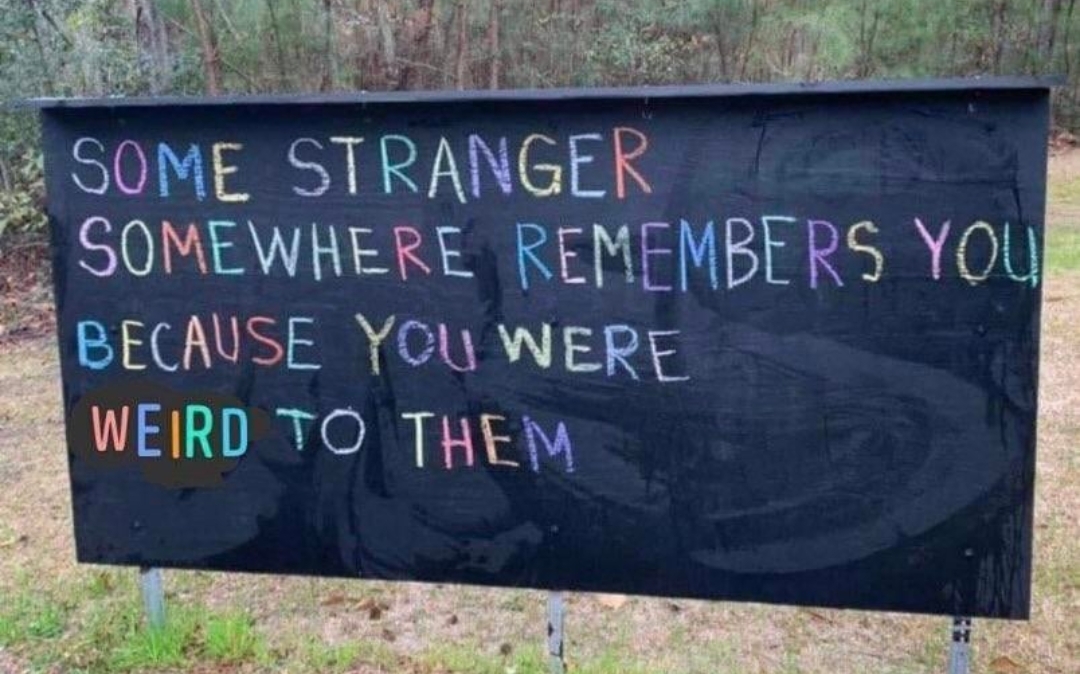 SOME STRANGER
SOMEWHERE REMEMBERS YOU
BECAUSE YOU WERE
WEIRD TO THEM